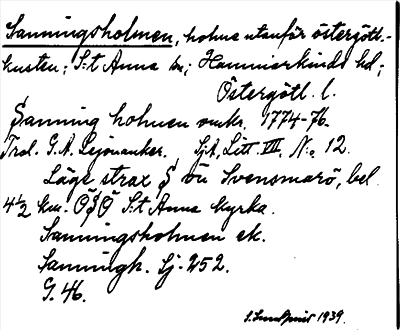 Sanningsholmen, holme utanför östergötl.-
kusten; S:t Anna sn; Hammarkinds hd;
Östergötl. l.
Sanning holmen omkr. 1774-76.
Trol. G. A. Lejonanker. Sj.A, Litt VII, N:o 12.
Läge strax S om Svensmarö, bel.
4 1/2 km. ÖSÖ S:t Anna kyrka.
Sanningsholmen ek.
Sanningh. Sj. 252.
G. 46.
1939.